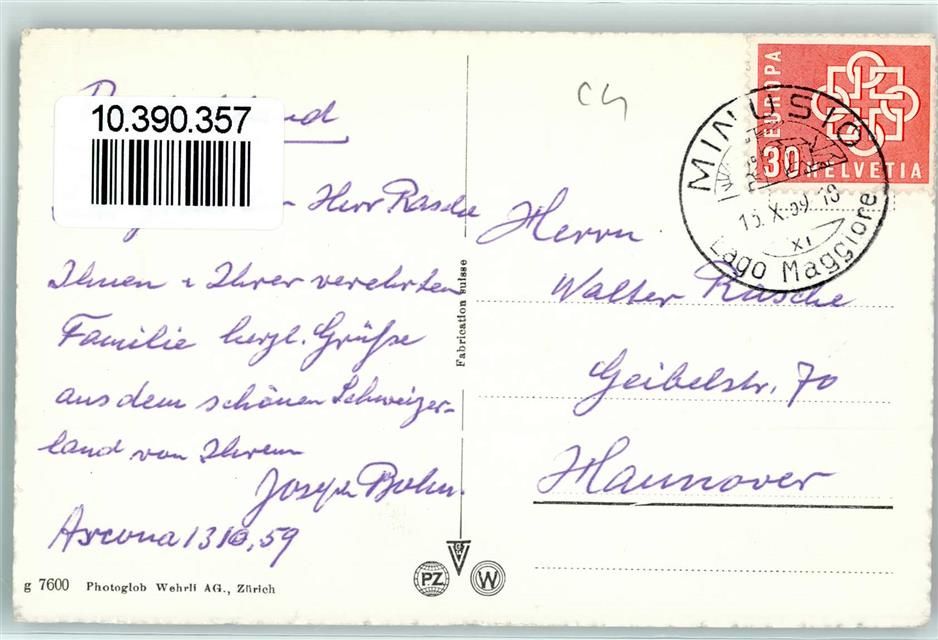 10.390.357
Herr Rasche
Ihnen u Ihrer verehrten
Familie herzl. Grüße
aus dem schönen Schweizer-
land von Ihrem
Joseph Bohn.
Ascona 13 10. 59
g 7600 Photoglob Wehrli AG., Zürich
Fabrication suisse
PZ
W
C4
EUROPA
30 HELVETIA
MINUSIO
X. 59. 18
XI
Lago Maggiore
Herrn
Walter Rasche
Geibelstr. 70
Hannover